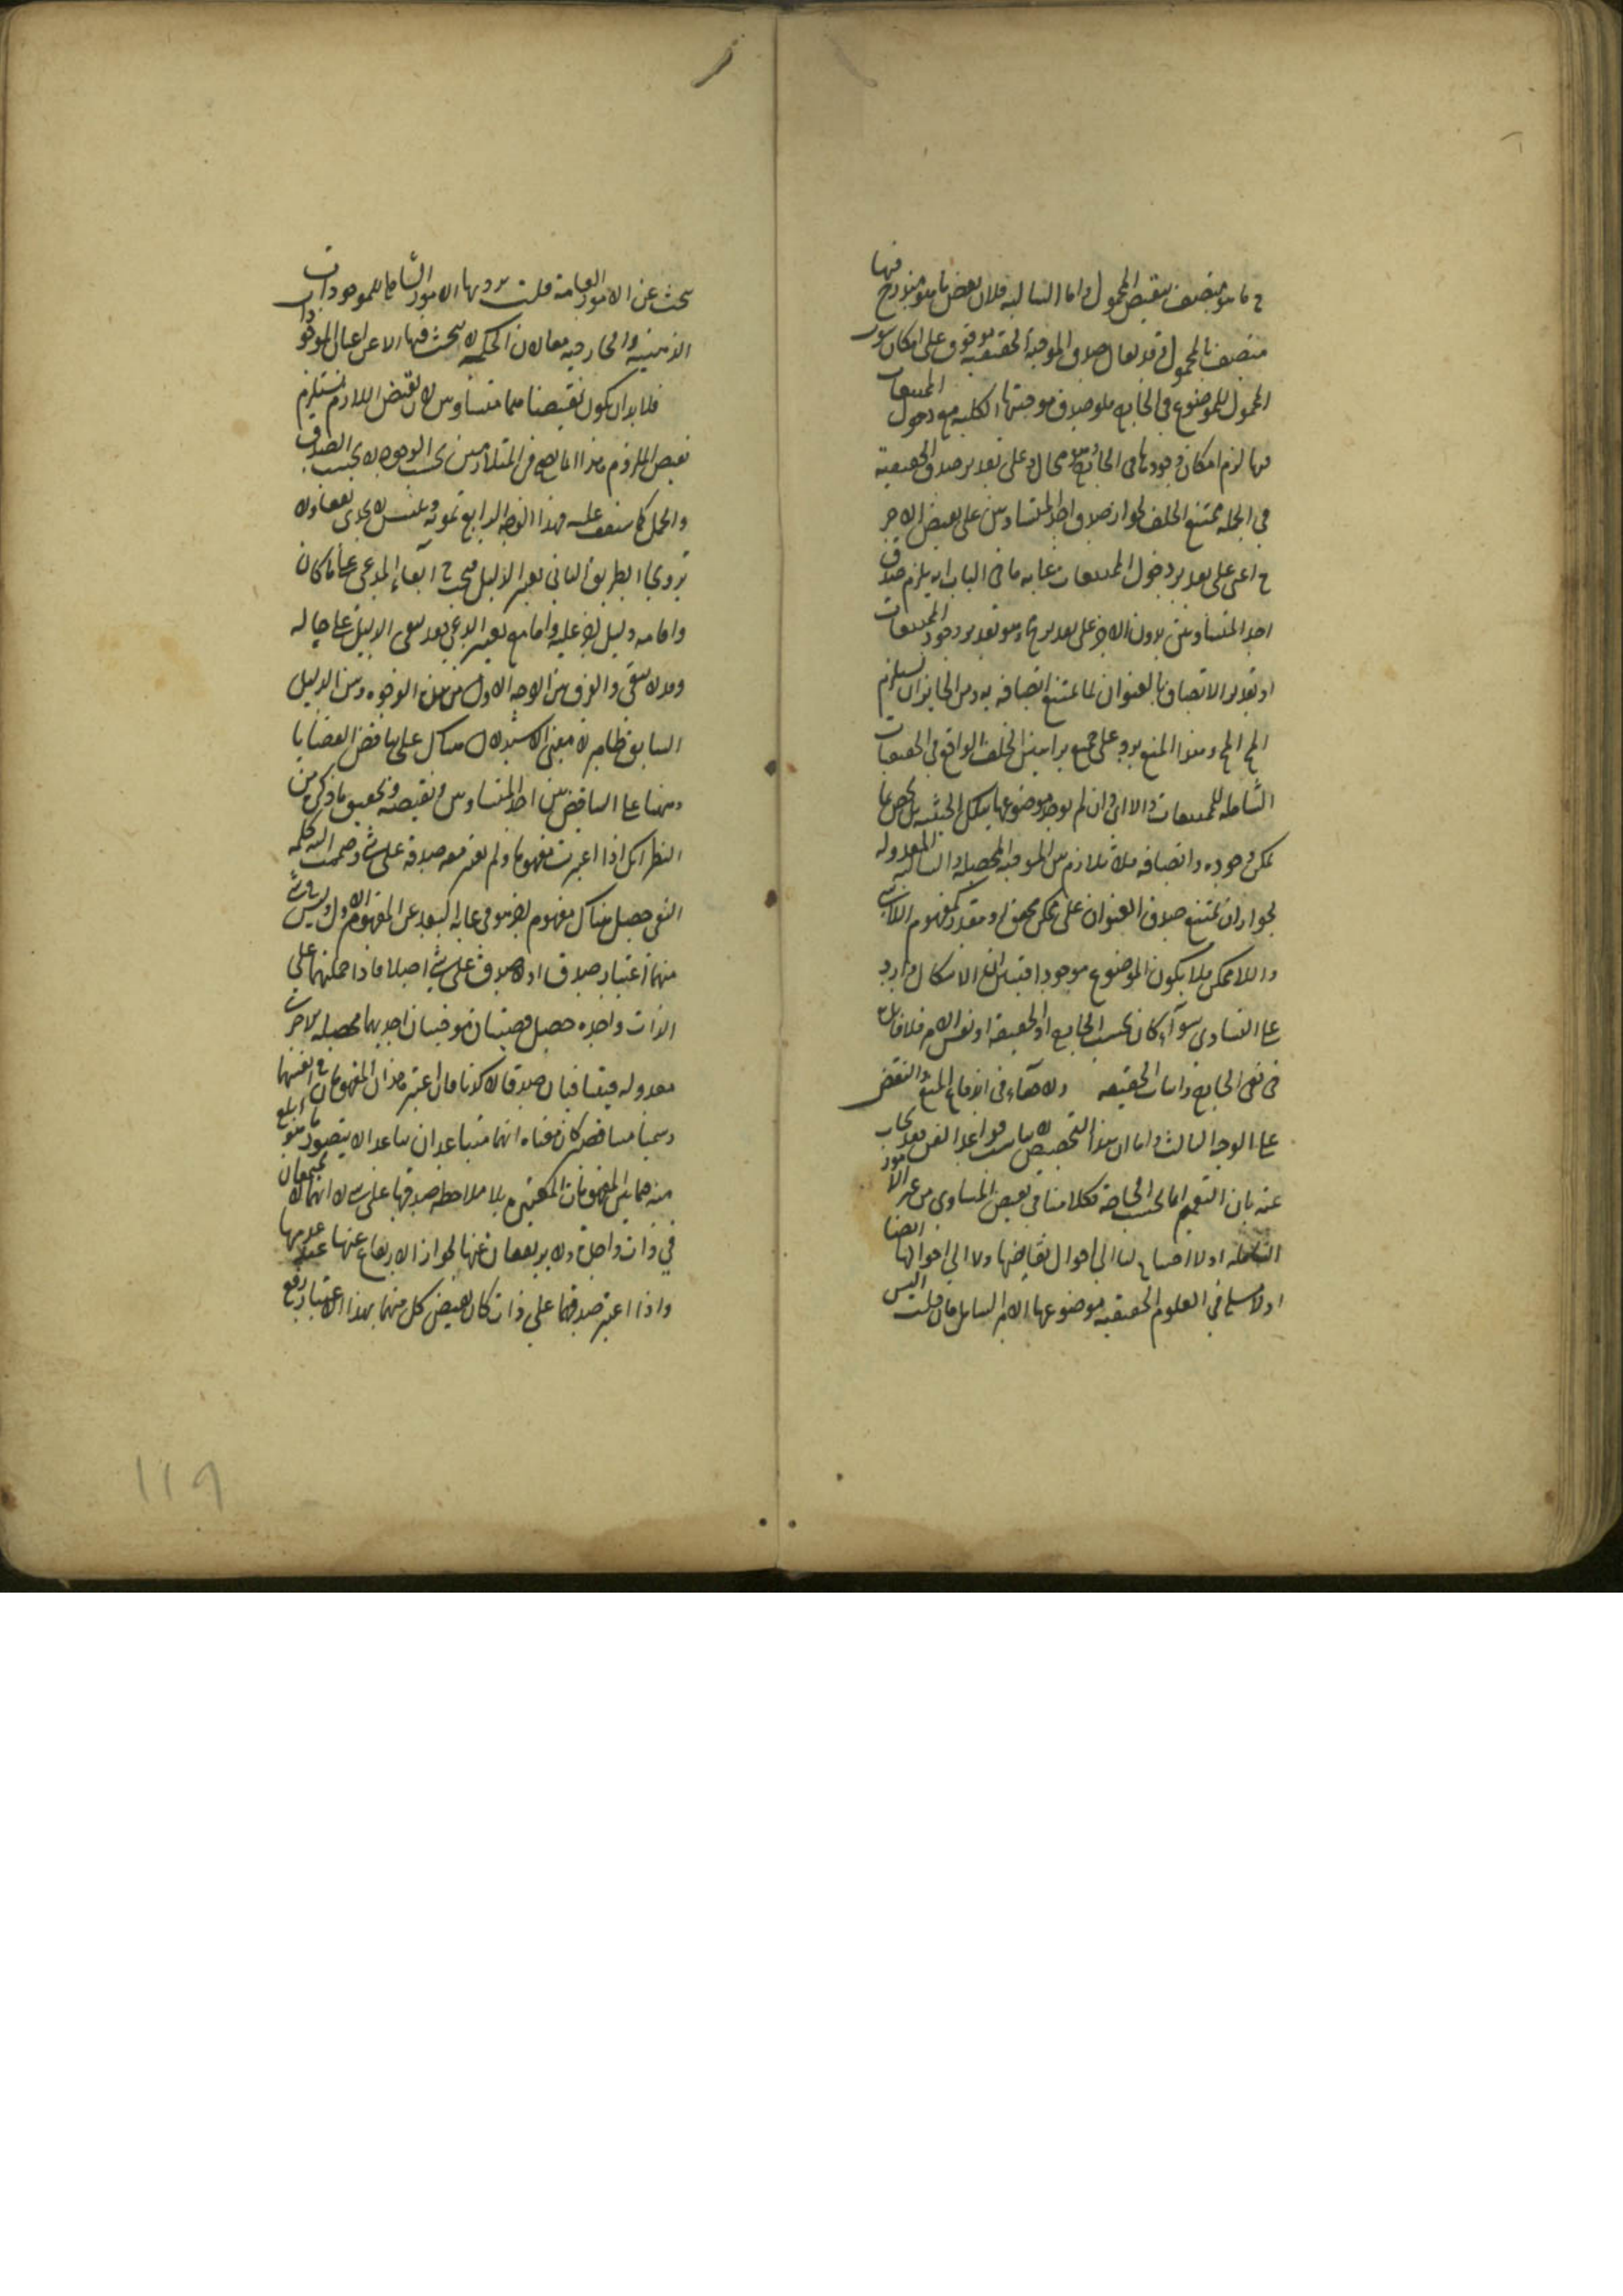 ح ما هو متصف بنقيض المحمول واما السالبة فلان بعض ما هو مندرج فيها
متصف بالمحمول وقد يقال صدق الموجبة الحقيقية موقوف على امكان ثبوت
المحمول للموضوع في الخارج فلو صدق موجبتها الكلية مع دخول الممتنعات
فيها لزم امكان وجودها في الخارج محال وعلى تقدير صدق الحقيقية
في الجملة يمتنع الخلف لجواز صدق احد المتساويين على نقيض الاخر
ح اعني على تقدير دخول الممتنعات غاية ما في الباب انه يلزم صدق
احد المتساويين بدون الاخر على تقدير مح وهو تقدير وجود الممتنعات
او تقدير الاتصاف بالعنوان لما يمتنع اتصافه به ومن الجايز ان يستلزم
المح المح وهذا المنع يرد على جميع براهين الخلف الواقع في الحقيقيات
الشاملة للممتنعات
يمكن وجوده واتصافه فلا تلازم بين الموجبة المحصلة والسالبة المعدولة
لجواز ان يمتنع صدق العنوان على ممكن محقق او مقدر كمفهوم اللاشي
واللاممكن فلا يكون الموضوع موجودا الاشكال وارد
على التساوي سواء كان بحسب الخارج او الحقيقة او نفس الامر فلا فائدة
في نفي الخارج واثبات الحقيقة ولا خفاء في اندفاع المنع والنقض
على الوجه الثالث واما ان هذا التخصيص لا يناسب قواعد الفن فقد يجاب
عنه بان التعميم انما بحسب الحاجة فكلامنا في نقيض المتساوي من غير الامور
الشاملة اذ لا احتياج لنا الى احوال نقايضها ولا الى احوالها ايضا
اذ لا في العلوم الحقيقية موضوعها الامر الشامل فان قلت اليس
يبحث عن الامور العامة قلت يريد بها الامور الشاملة للموجودات
الذهنية والخارجية معا لان الحكمة لا يبحث فيها الا عن اعيان الموجودات
فلا بد ان يكون نقيضاهما متساويين لان نقيض اللازم يستلزم
نقيض الملزوم وهذا انما يصح في المتلازمين بحسب الوجود لا بحسب الصدق
والحمل كما ستقف عليه فهذا الوجه الرابع تمويه وتلبيس لا يجدي نفعا
الطريق الثاني تغيير الدليل مح ابقاء المدعى على ما كان
واقامة دليل اخر عليه واما مع تغيير المدعى فقد يبقى الدليل على حاله
وقد لا يبقى والفرق بين الوجه الاول من هذه الوجوه وبين الدليل
السابق ظاهر لان مبنى الاستدلال هناك على تناقض القضايا
وههنا على التناقض بين احد المتساويين ونقيضه وتحقيق ما ذكر من
النظر انك اذا اعتبرت مفهوما ولم تعتبر معه صدقه على شي وضممت اليه كلمة
النفي حصل هناك مفهوم اخر هو في غاية البعد عن المفهوم الاول وليس في شي
منهما اعتبار صدق او لا صدق على شي اصلا فاذا حملتهما على
الذات واحدة حصل قضيتان موجبتان احديهما محصلة والاخرى
معدولة فيتنافيان صدقا لا كذبا فان اعتبر هذان المفهومان في انفسهما
وسميا متناقضين كان معناه انهما متباعدان تباعدا لا يتصور ما هو ابلغ
منه فيما بين المفهومات المعتبرة بلا ملاحظة صدقها على شي لا انهما لا يجتمعان
في ذات واحدة ولا يرتفعان عنها لجواز الارتفاع عنها عند عدمها
واذا اعتبر صدقهما على ذات كان نقيض كل منهما بهذا الاعتبار رفع
١١٩